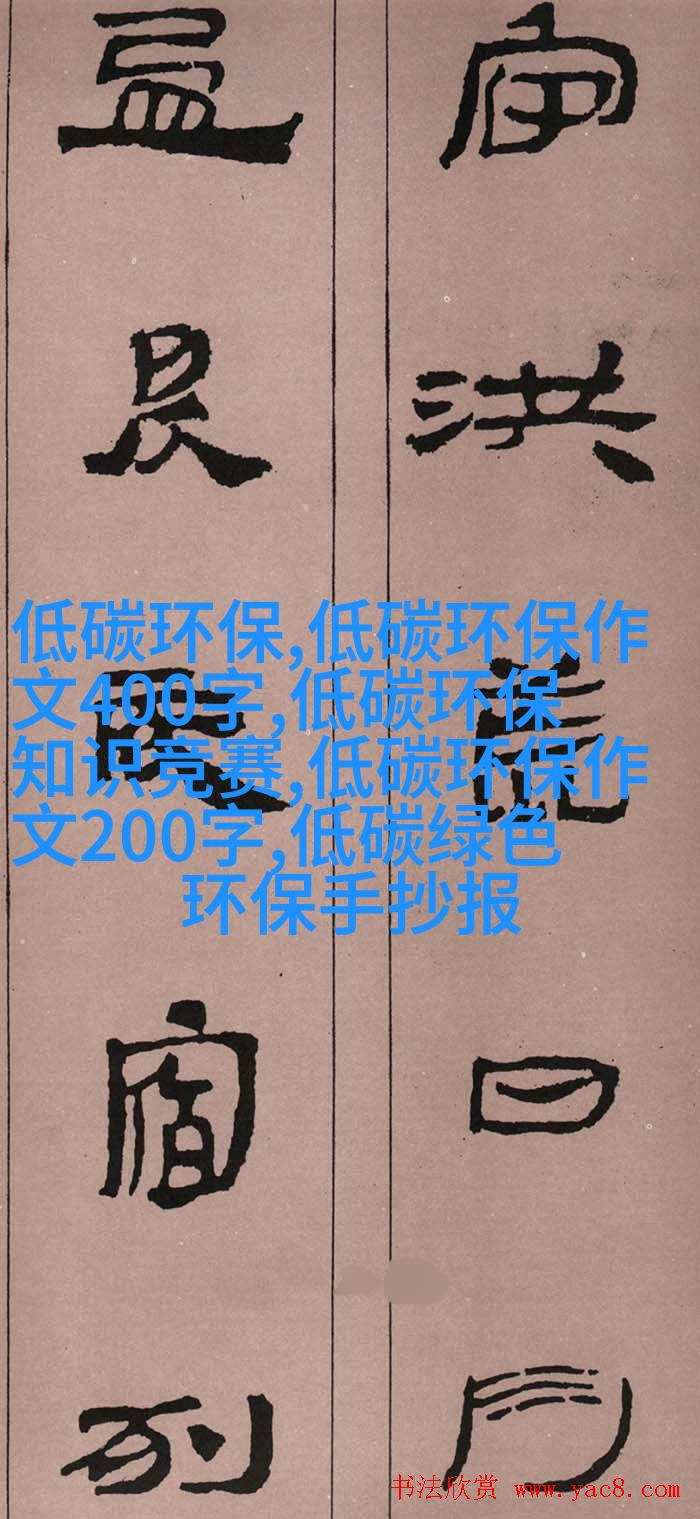 宙洪荒日月
盈昃辰宿列
低碳环保,低碳环保作
文400字,低碳环保
知识竞赛,低碳环保作
文200字,低碳绿色
环保手抄报
书法欣赏 www.yac8.com